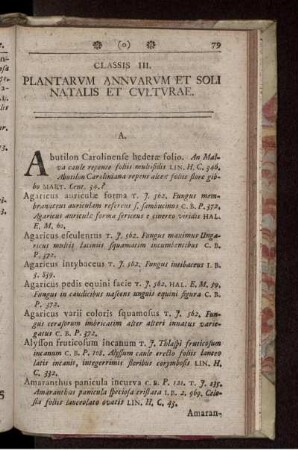 (o) 79
CLASSIS III.
PLANTARVM ANNVARVM ET SOLI
NATALIS ET CVLTURAE.
A.
Abutilon Carolinense hederæ folio. An Mal-
va caule repente foliis multifidis LIN. H. C. 346.
Abutilon Carolinianum repens alceæ foliis flore gil-
vo MART. Cent. 34.?
Agaricus auriculæ forma T. J. 562. Fungus mem-
branaceus auriculam referens s. sambucinus C. B. P. 372.
Agaricus auriculæ forma sericeus e cinereo viridis HAL.
E. M. 60.
Agaricus esculentus T. J. 562. Fungus maximus Unga-
ricus multis laciniis squamatim incumbentibus C. B.
P. 371.
Agaricus intybaceus T. J. 562. Fungus intibaceus I. B.
3. 839.
Agaricus pedis equini facie T. J. 562. HAL. E. M. 59.
Fungus in caudicibus nascens unguis equini figura C. B.
P. 372.
Agaricus varii coloris squamosus T. J. 562. Fun-
gus cerasorum imbricatim alter alteri innatus varie-
gatus C. B. P. 372.
Alysson fruticosum incanum T. J. Thlaspi fruticosum
incanum C. B. P. 108. Alyssum caule erecto foliis lanceo-
latis incanis, integerrimis floribus corymbosis LIN. H.
C. 332.
Amaranthus panicula incurva C. B. P. 121. T. J. 235.
Amaranthus panicula speciosa cristata I. B. 2. 969. Celo-
sia foliis lanceolato ovatis LIN. H. C. 43.
Amaran-